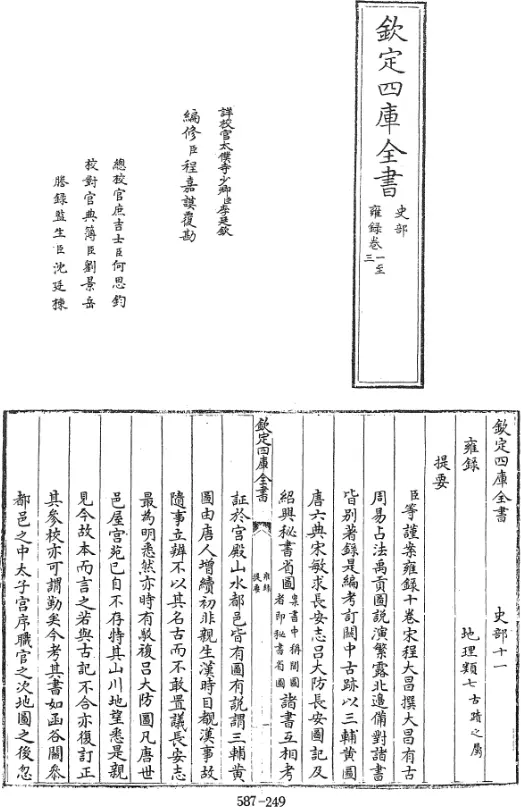 欽定四庫全書
史部
雍録卷一至
三
詳校官太僕寺少卿臣李廷欽
編修臣程嘉謨覆勘
總校官庶吉士臣何思鈞
校對官典簿臣劉景岳
謄録監生臣沈廷棟
欽定四庫全書
史部十一
雍録
地理類七古蹟之屬
提要
臣等謹案雍録十卷宋程大昌撰大昌有古
周易占法禹貢圖説演繁露北邊備對諸書
皆别著録是編考訂關中古跡以三輔黄圖
唐六典宋敏求長安志吕大防長安圖記及
紹興秘書省圖案書中稱閣圖者即秘書省圖諸書互相考
欽定四庫全書
雍録
提要
証於宮殿山水都邑皆有圖有説謂三輔黄
圖由唐人増續初非親生漢時目覩漢事故
隨事立辨不以其名古而不敢置議長安志
最為明悉然亦時有駁複吕大防圖凡唐世
邑屋宫苑已自不存特其山川地望悉是親
見今故本而言之若與古記不合亦復訂正
其參校亦可謂勤矣今考其書如函谷關參
都邑之中太子宫序職官之次地圖之後忽
587-249